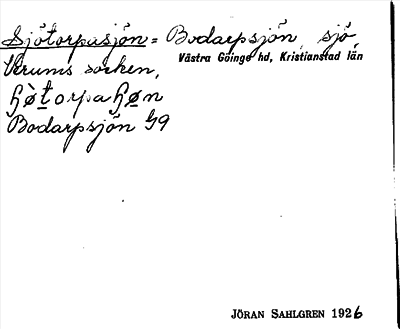 Sjötorpasjön = Bodarpsjön, sjö,
Västra Göinge hd, Kristianstad län
Verums socken,
Bodarpsjön
JÖRAN SAHLGREN 1926